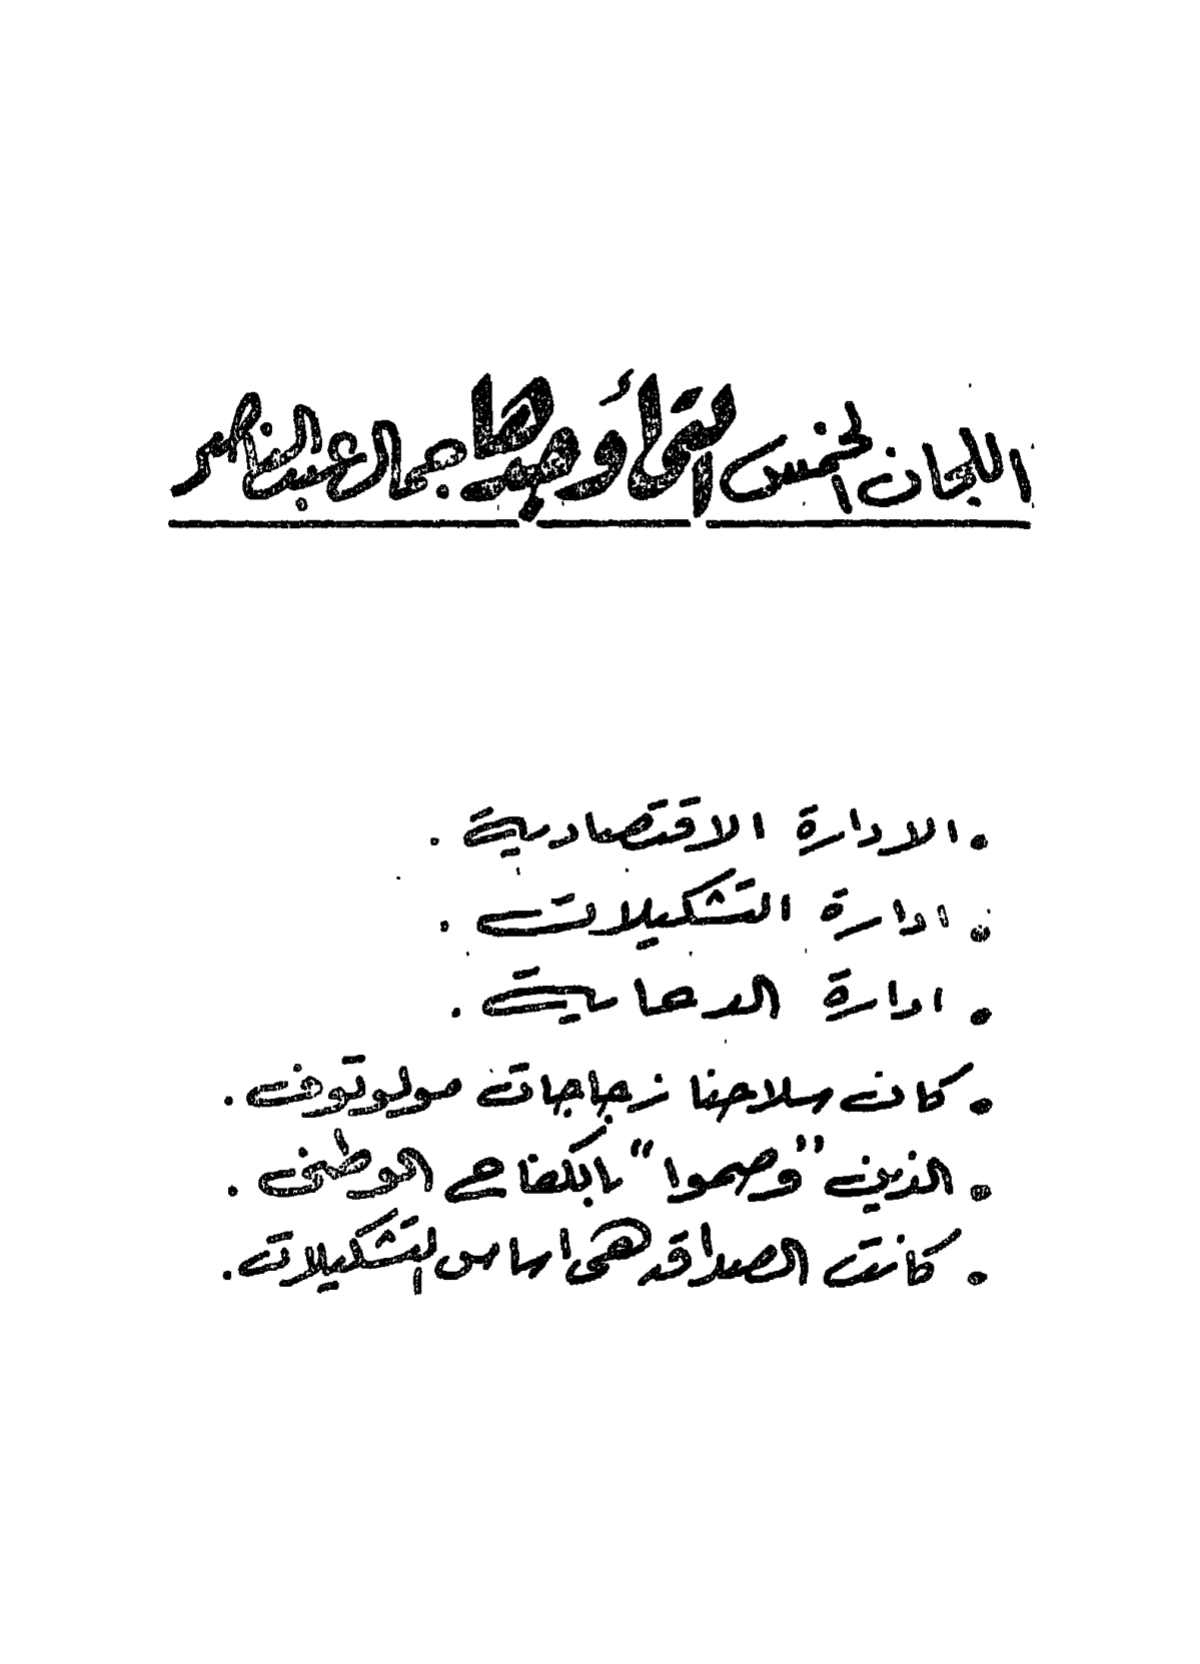 اللجان الخمس التى أوجدها جمال عبد الناصر
• الادارة الاقتصادية .
• ادارة التشكيلات .
• ادارة الدعاية .
• كان سلاحنا زجاجات مولوتوف .
• الذين "وصموا" بالكفاح الوطنى .
• كانت الصداقه هى اساس التشكيلات .